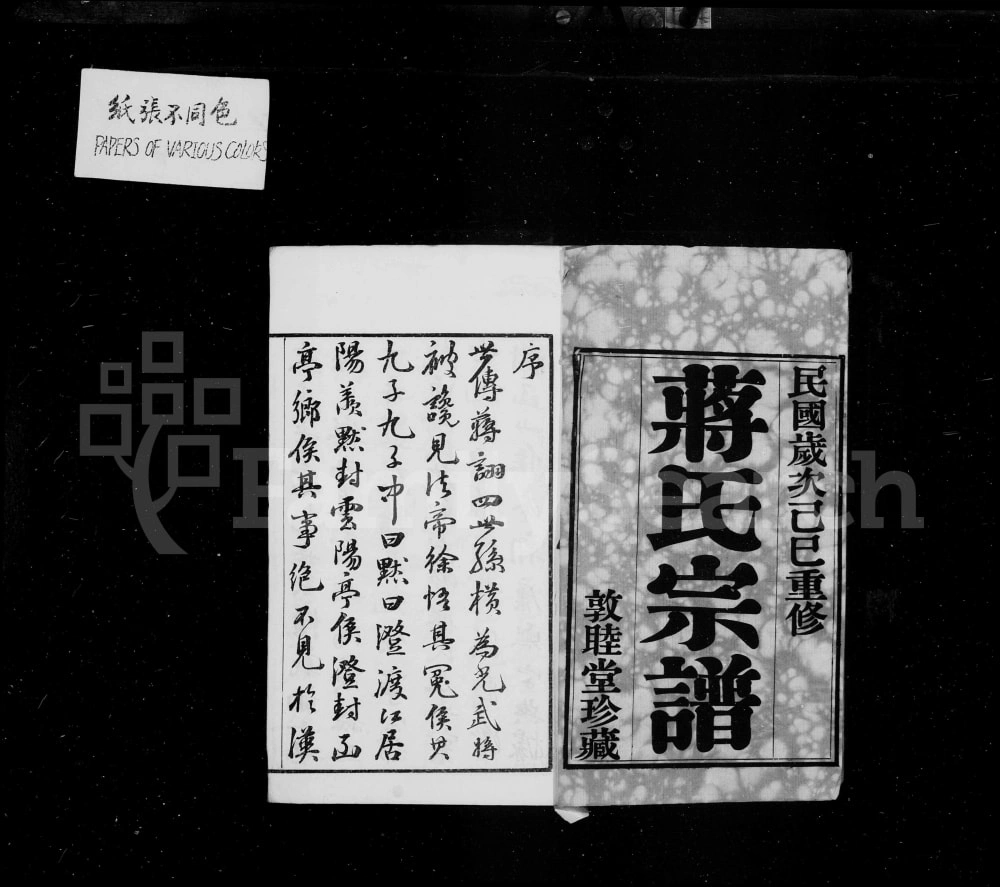 紙張不同色
PAPERS OF VARIOUS COLORS
民國歲次己巳重修
蔣氏宗譜
敦睦堂珍藏
序
世傳蔣詡四世孫橫為光武將
被讒見法帝徐悟其冤侯其
九子九子中曰默曰澄渡江居
陽羨默封雲陽亭侯澄封㔾
亭鄉侯其事絕不見於漢